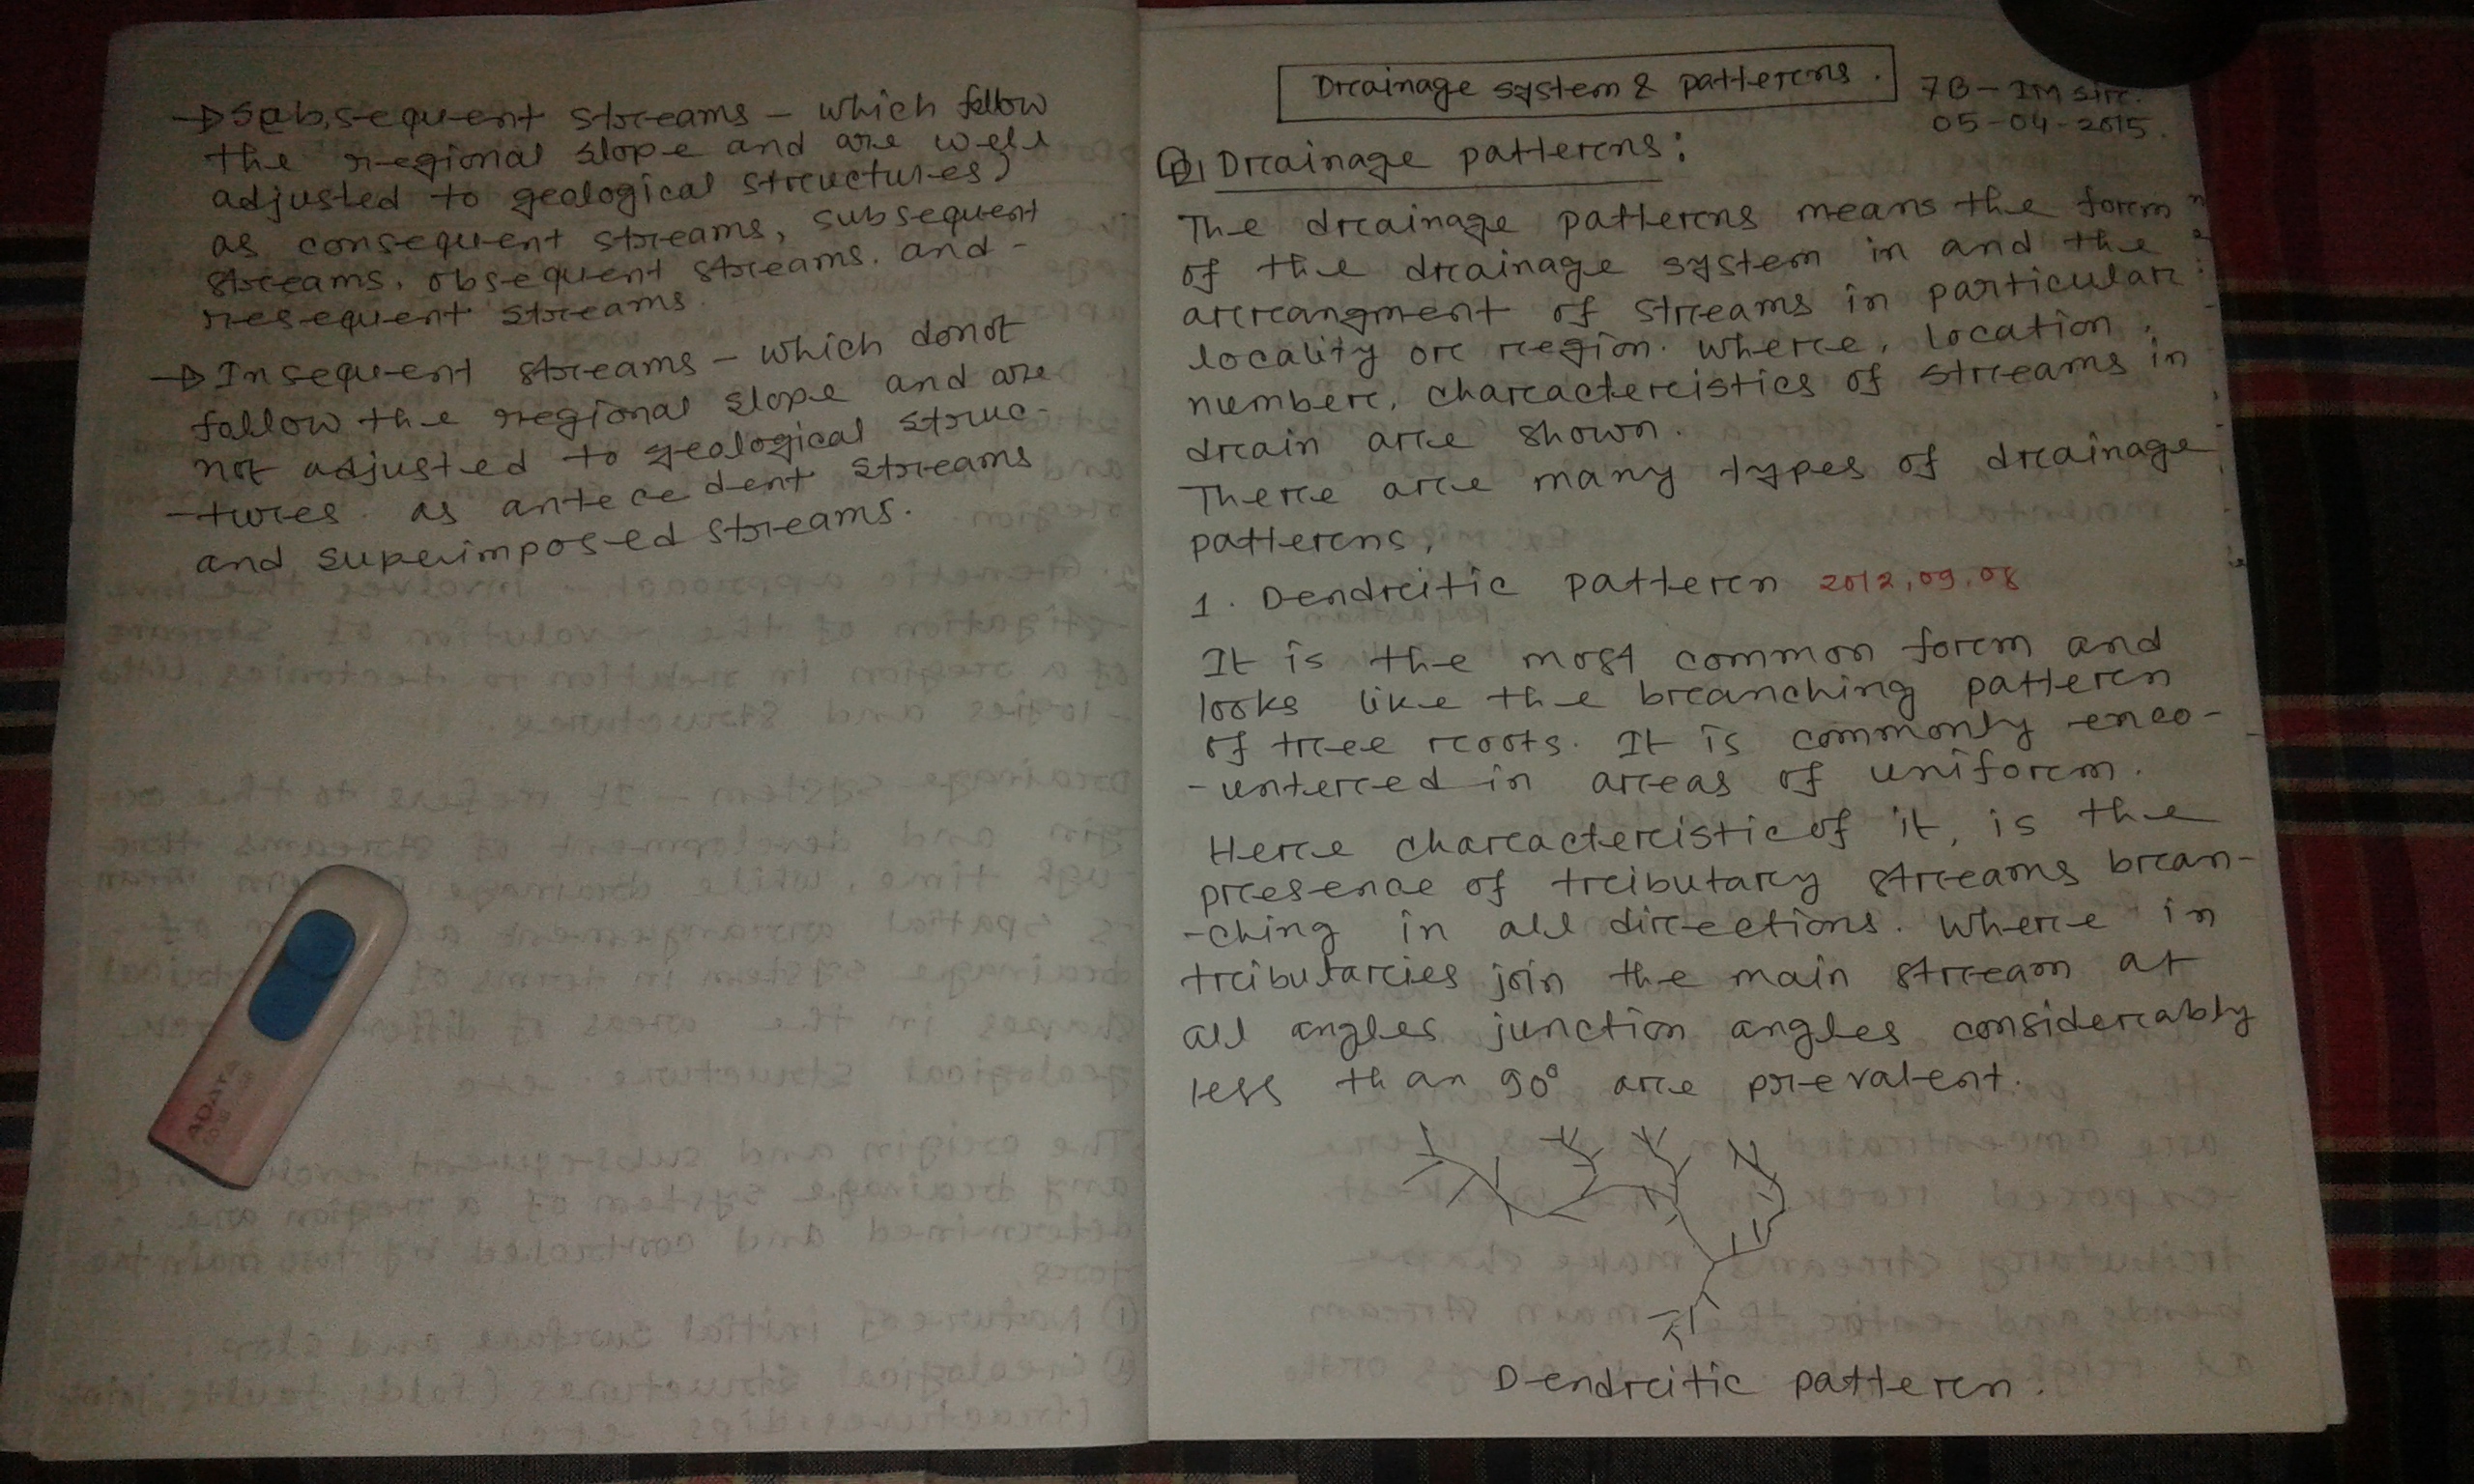 → Subsequent streams - which follow
the regional slope and are well
adjusted to geological structures)
as consequent streams, subsequent
streams, obsequent streams. and -
resequent streams.
→ Insequent streams - which donot
follow the regional slope and are
not adjusted to geological struc-
-tures. as antecedent streams
and superimposed streams.
ADATA
Drainage system & patterns.
7B - IM sir.
05-04-2015.
Drainage patterns:
The drainage patterns means the form
of the drainage system in and the
arrangment of streams in particular
locality or region. where, location,
number, characteristics of streams in
drain are shown.
There are many types of drainage
patterns,
1. Dendritic pattern 2012,09,08
It is the most common form and
looks like the branching pattern
of tree roots. It is commonly enco-
-untered in areas of uniform.
Here characteristic of it, is the
presence of tributary streams bran-
-ching in all directions. Where in
tributaries join the main stream at
all angles junction angles considerably
less than 90° are prevalent.
Dendritic pattern.